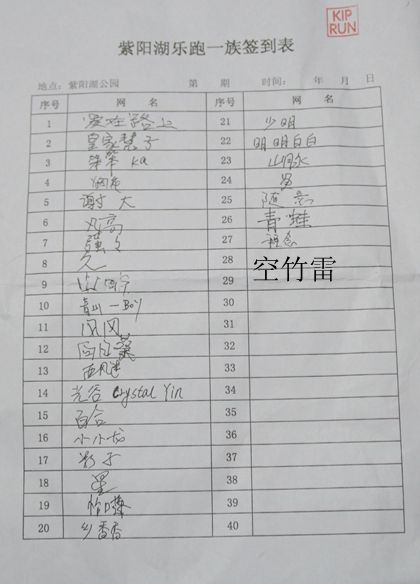 KIP
RUN
紫阳湖乐跑一族签到表
地点：紫阳湖公园 第 期 时间： 年 月 日
序号 网 名 序号 网 名
1 爱在路上 21 少明
2 皇家慧子 22 明明白白
3 荣荣 ka 23
4 24
5 谢大 25 随意
6 26 青蛙
7 强々 27
8 28
9 29 空竹雷
10 青山一Boy 30
11 风风 31
12 32
13 33
14 光谷 Crystal Yin 34
15 百合 35
16 小小龙 36
17 影子 37
18 星 38
19 39
20 乡香香 40